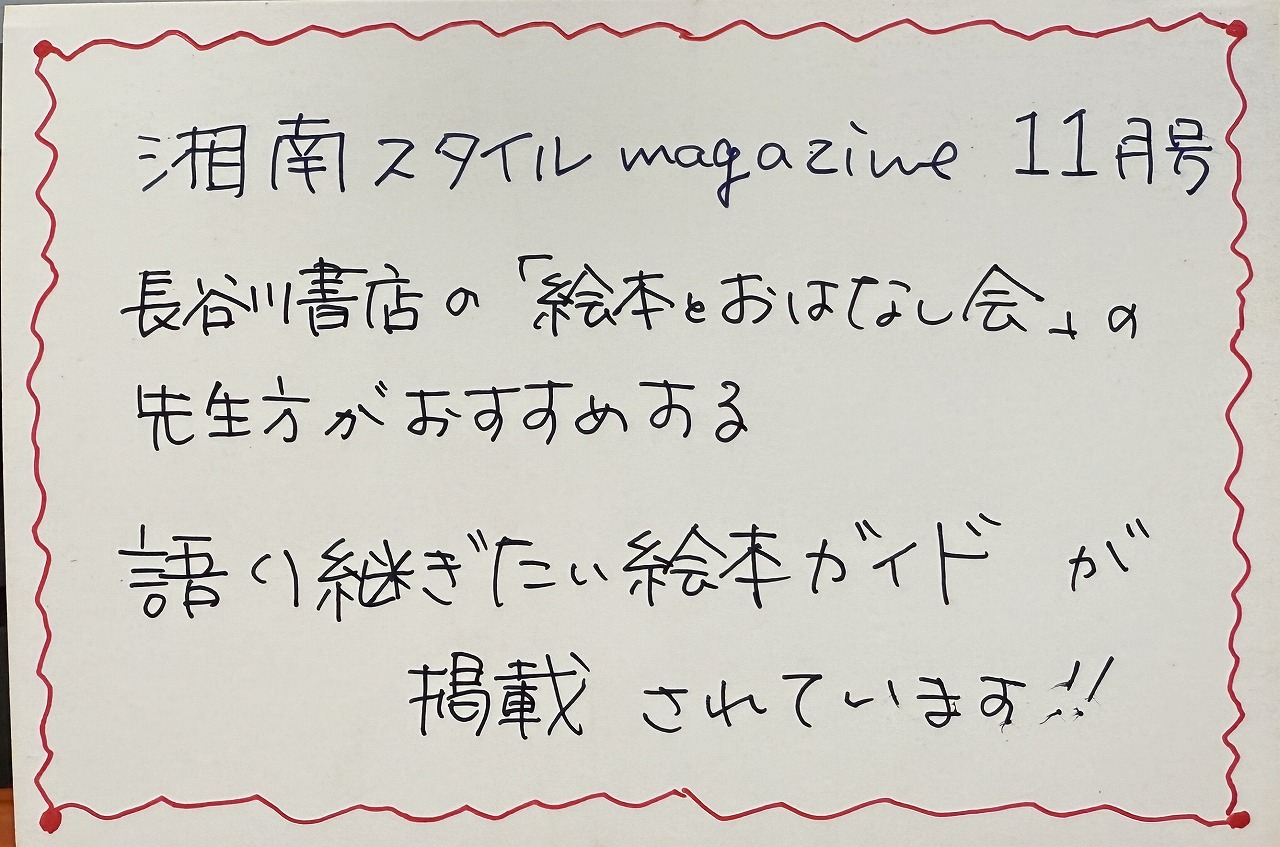 湘南スタイル magazine 11月号
長谷川書店の「絵本とおはなし会」の
先生方がおすすめする
語り継ぎたい絵本ガイドが
掲載されています!!